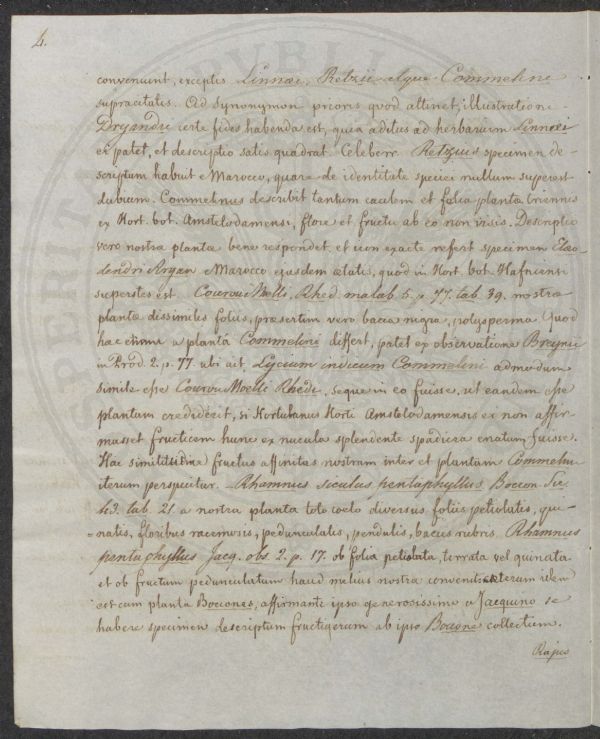 4.
conveniunt, exceptis Linnæi, Retzii atque Commelini
supracitatis. Ad synonymon prioris quod attinet, illustrationi
Dryandri certe fides habenda est, quia aditus ad herbarium Linnæi
ei patet, et descriptio satis quadrat. Celeberr. Retzius specimen de-
scriptum habuit e Marocco, quare de identitate speciei nullum superest
dubium. Commelinus describit tantum caulem et folia plantæ triennis
ex Hort. bot. Amstelodamensi, flore et fructu ab eo non visis. Descriptio
vero nostra planta bene respondet, et eam exacte refert specimen Elæo-
dendri Argan e Marocco ejusdem ætatis, quod in Hort. bot. Hafniensi
superstes est. Courou Moelli, Rhed. malab. 5. p. 77. tab. 39. nostræ
plantæ dissimilis foliis, præsertim vero bacca nigra, polysperma. Quod
hæc etiam a planta Commelini differt, patet ex observatione Breynii
in Prod. 2. p. 77. ubi ait, Lycium indicum Commelini admodum
simile esse Courou Moelli Rhedi, seque in eo fuisse, ut eandem esse
plantam crediderit, si Hortulanus Horti Amstelodamensis ei non affir-
masset fruticem hunc ex nucula splendente spadicea enatum fuisse.
Hac similitudine fructus affinitas nostram inter et plantam Commelini
iterum perspicitur. Rhamnus siculus pentaphyllus, Boccon. Sic.
43. tab. 21 a nostra planta toto coelo diversus foliis petiolatis, qui-
natis, floribus racemosis, pedunculatis, pendulis, baccis rubris. Rhamnus
pentaphyllus Jacq. obs. 2. p. 17. ob folia petiolata, ternata vel quinata
et ob fructum pedunculatum haud melius nostræ convenit, ceterum idem
est cum planta Bocones, affirmante ipso generosissimo a Jacquino se
habere specimen descriptum fructigerum ab ipso Bocone collectum.
Rajus